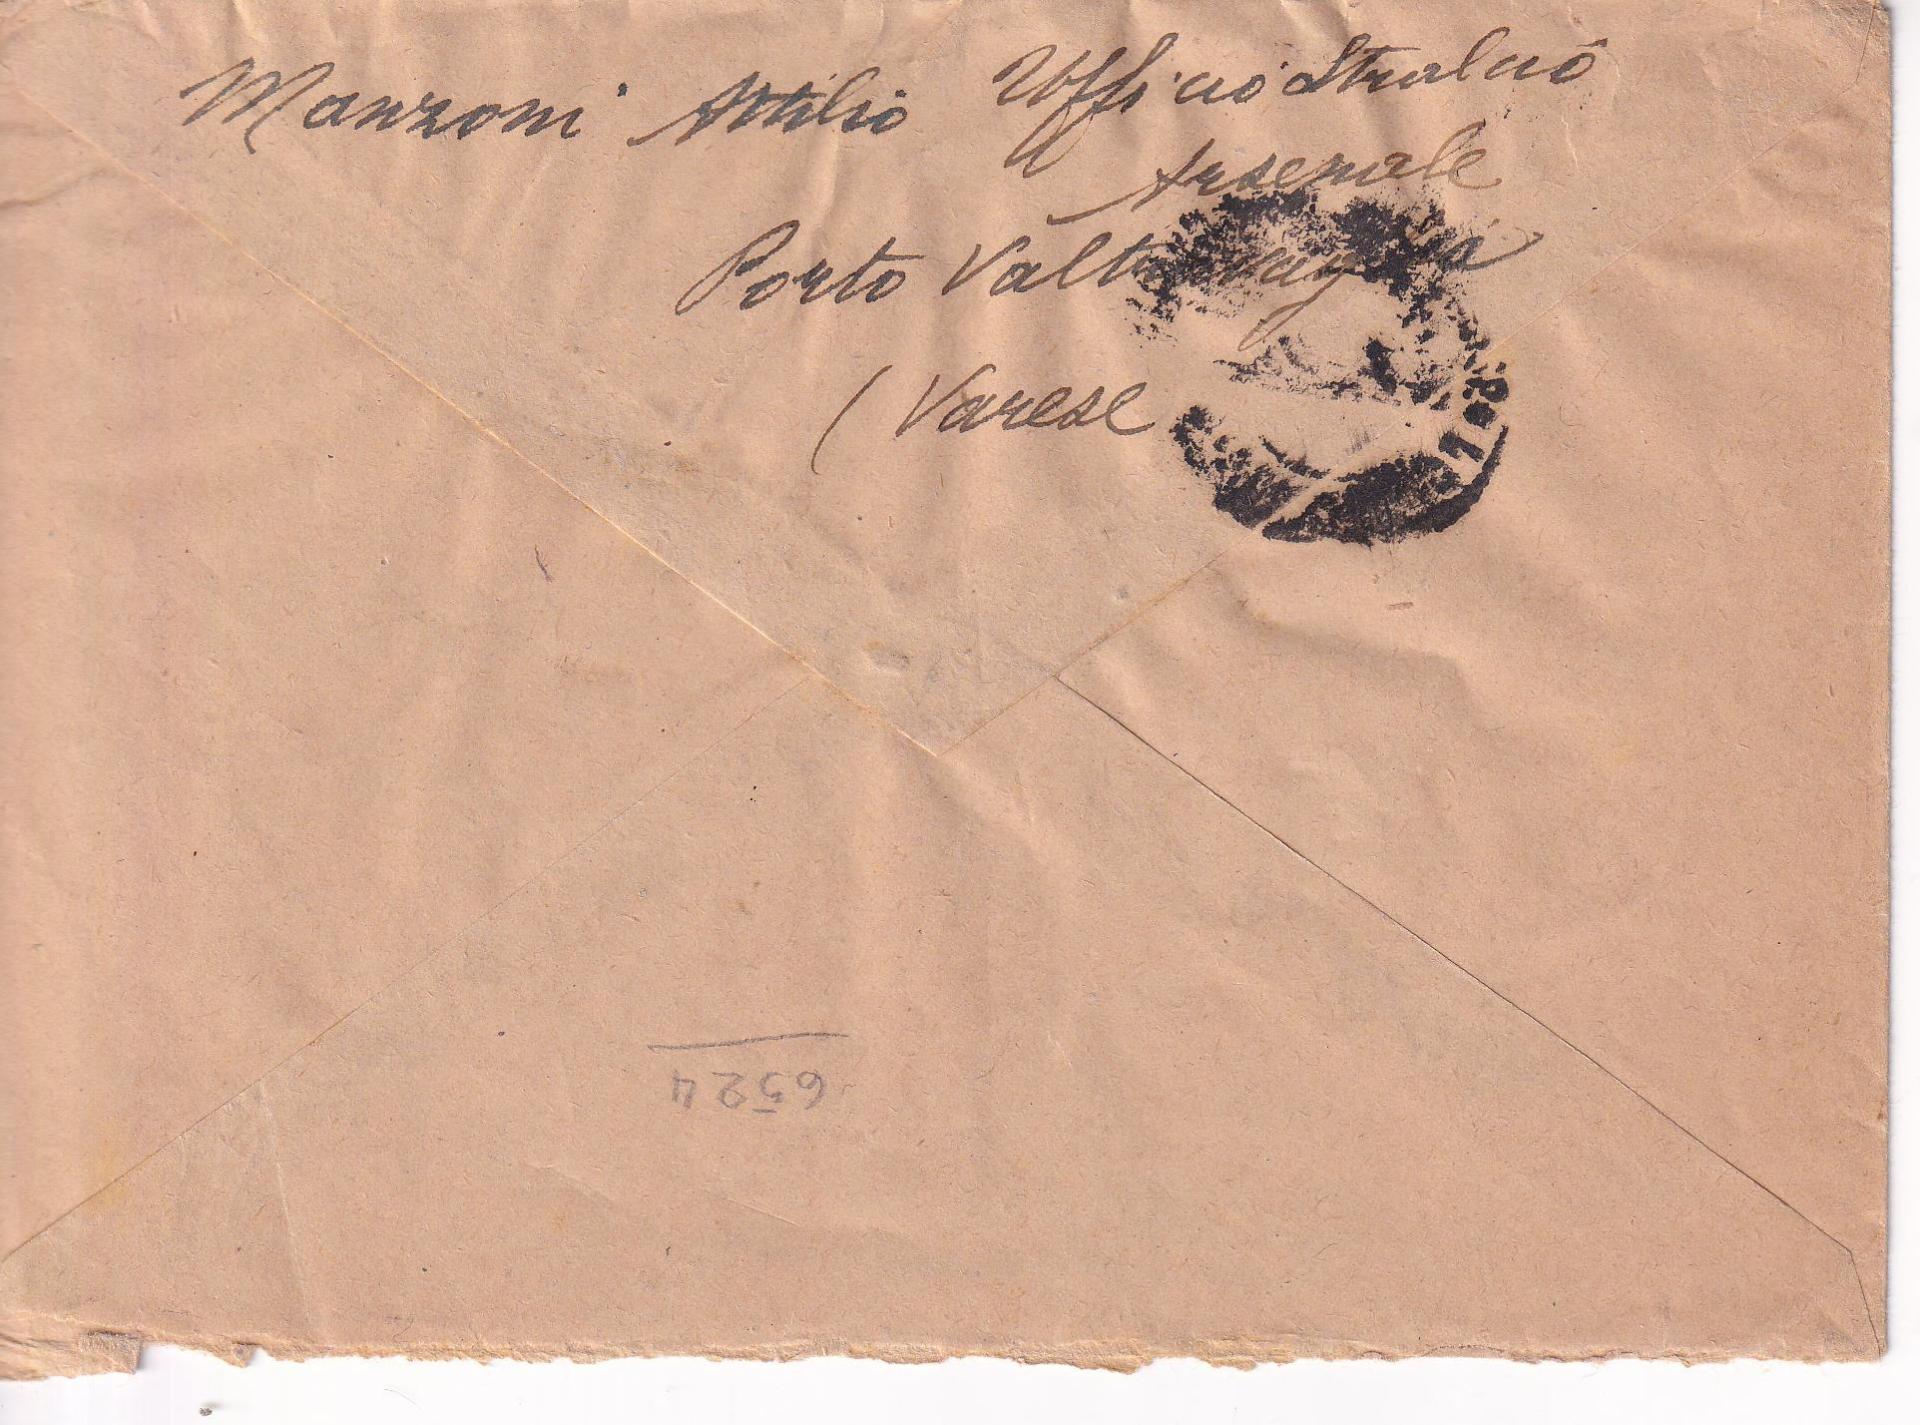 Manzoni Attilio Ufficio Stralcio
Arsenale
Porto Valtravaglia
(Varese
6524